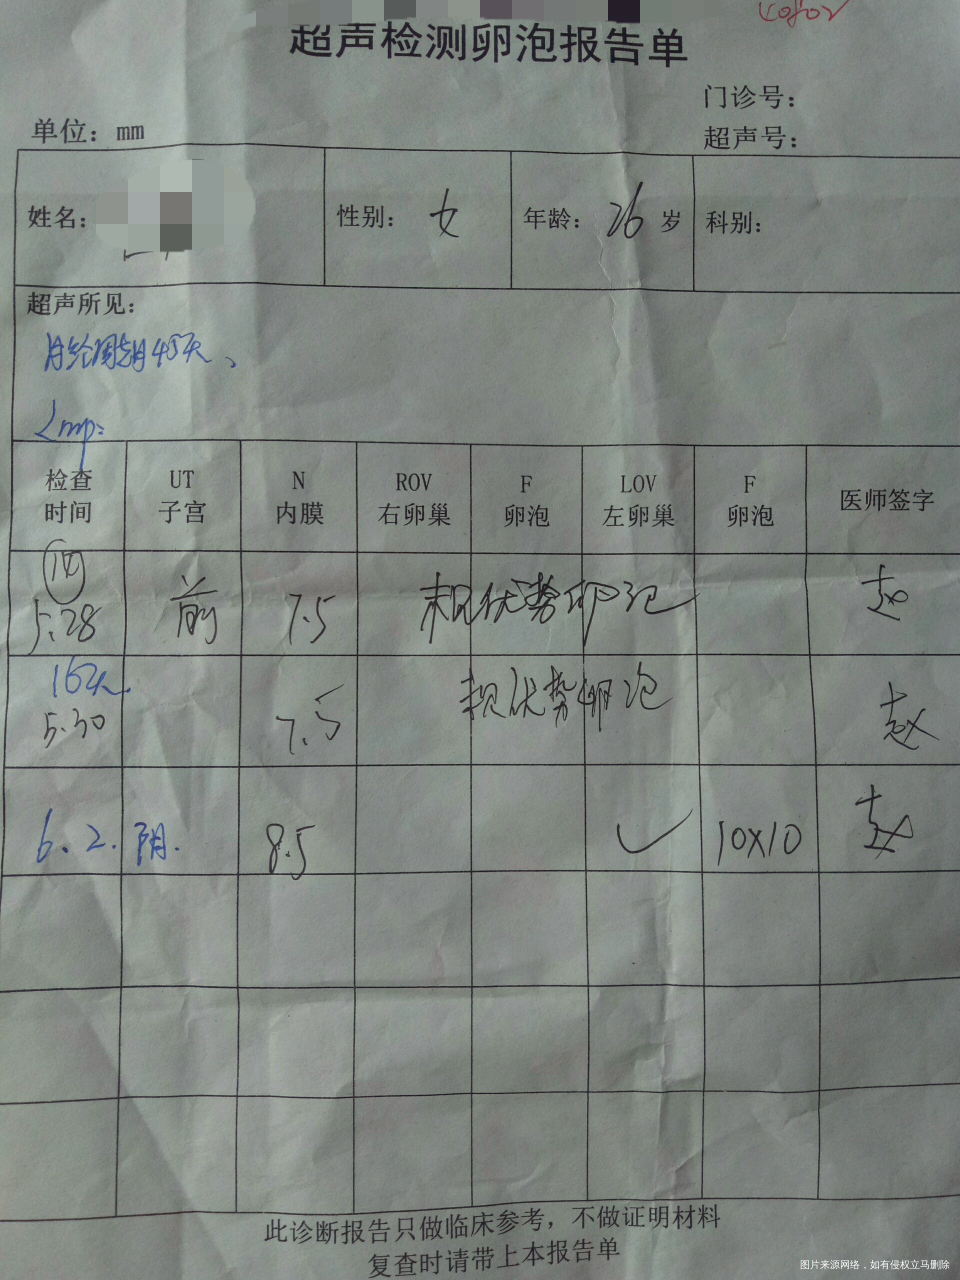 超声检测卵泡报告单
门诊号：
单位：mm
超声号：
姓名： 性别： 女 年龄： 26 岁 科别：
超声所见：
月经周期45天、
Lmp:
检查时间 UT 子宫 N 内膜 ROV 右卵巢 F 卵泡 LOV 左卵巢 F 卵泡 医师签字
5.28 前 7.5 未见优势卵泡 赵
16天 5.30 7.5 未见优势卵泡 赵
6.2. 阴. 8.5 ✓ 10X10 赵
此诊断报告只做临床参考，不做证明材料
复查时请带上本报告单
图片来源网络，如有侵权立马删除